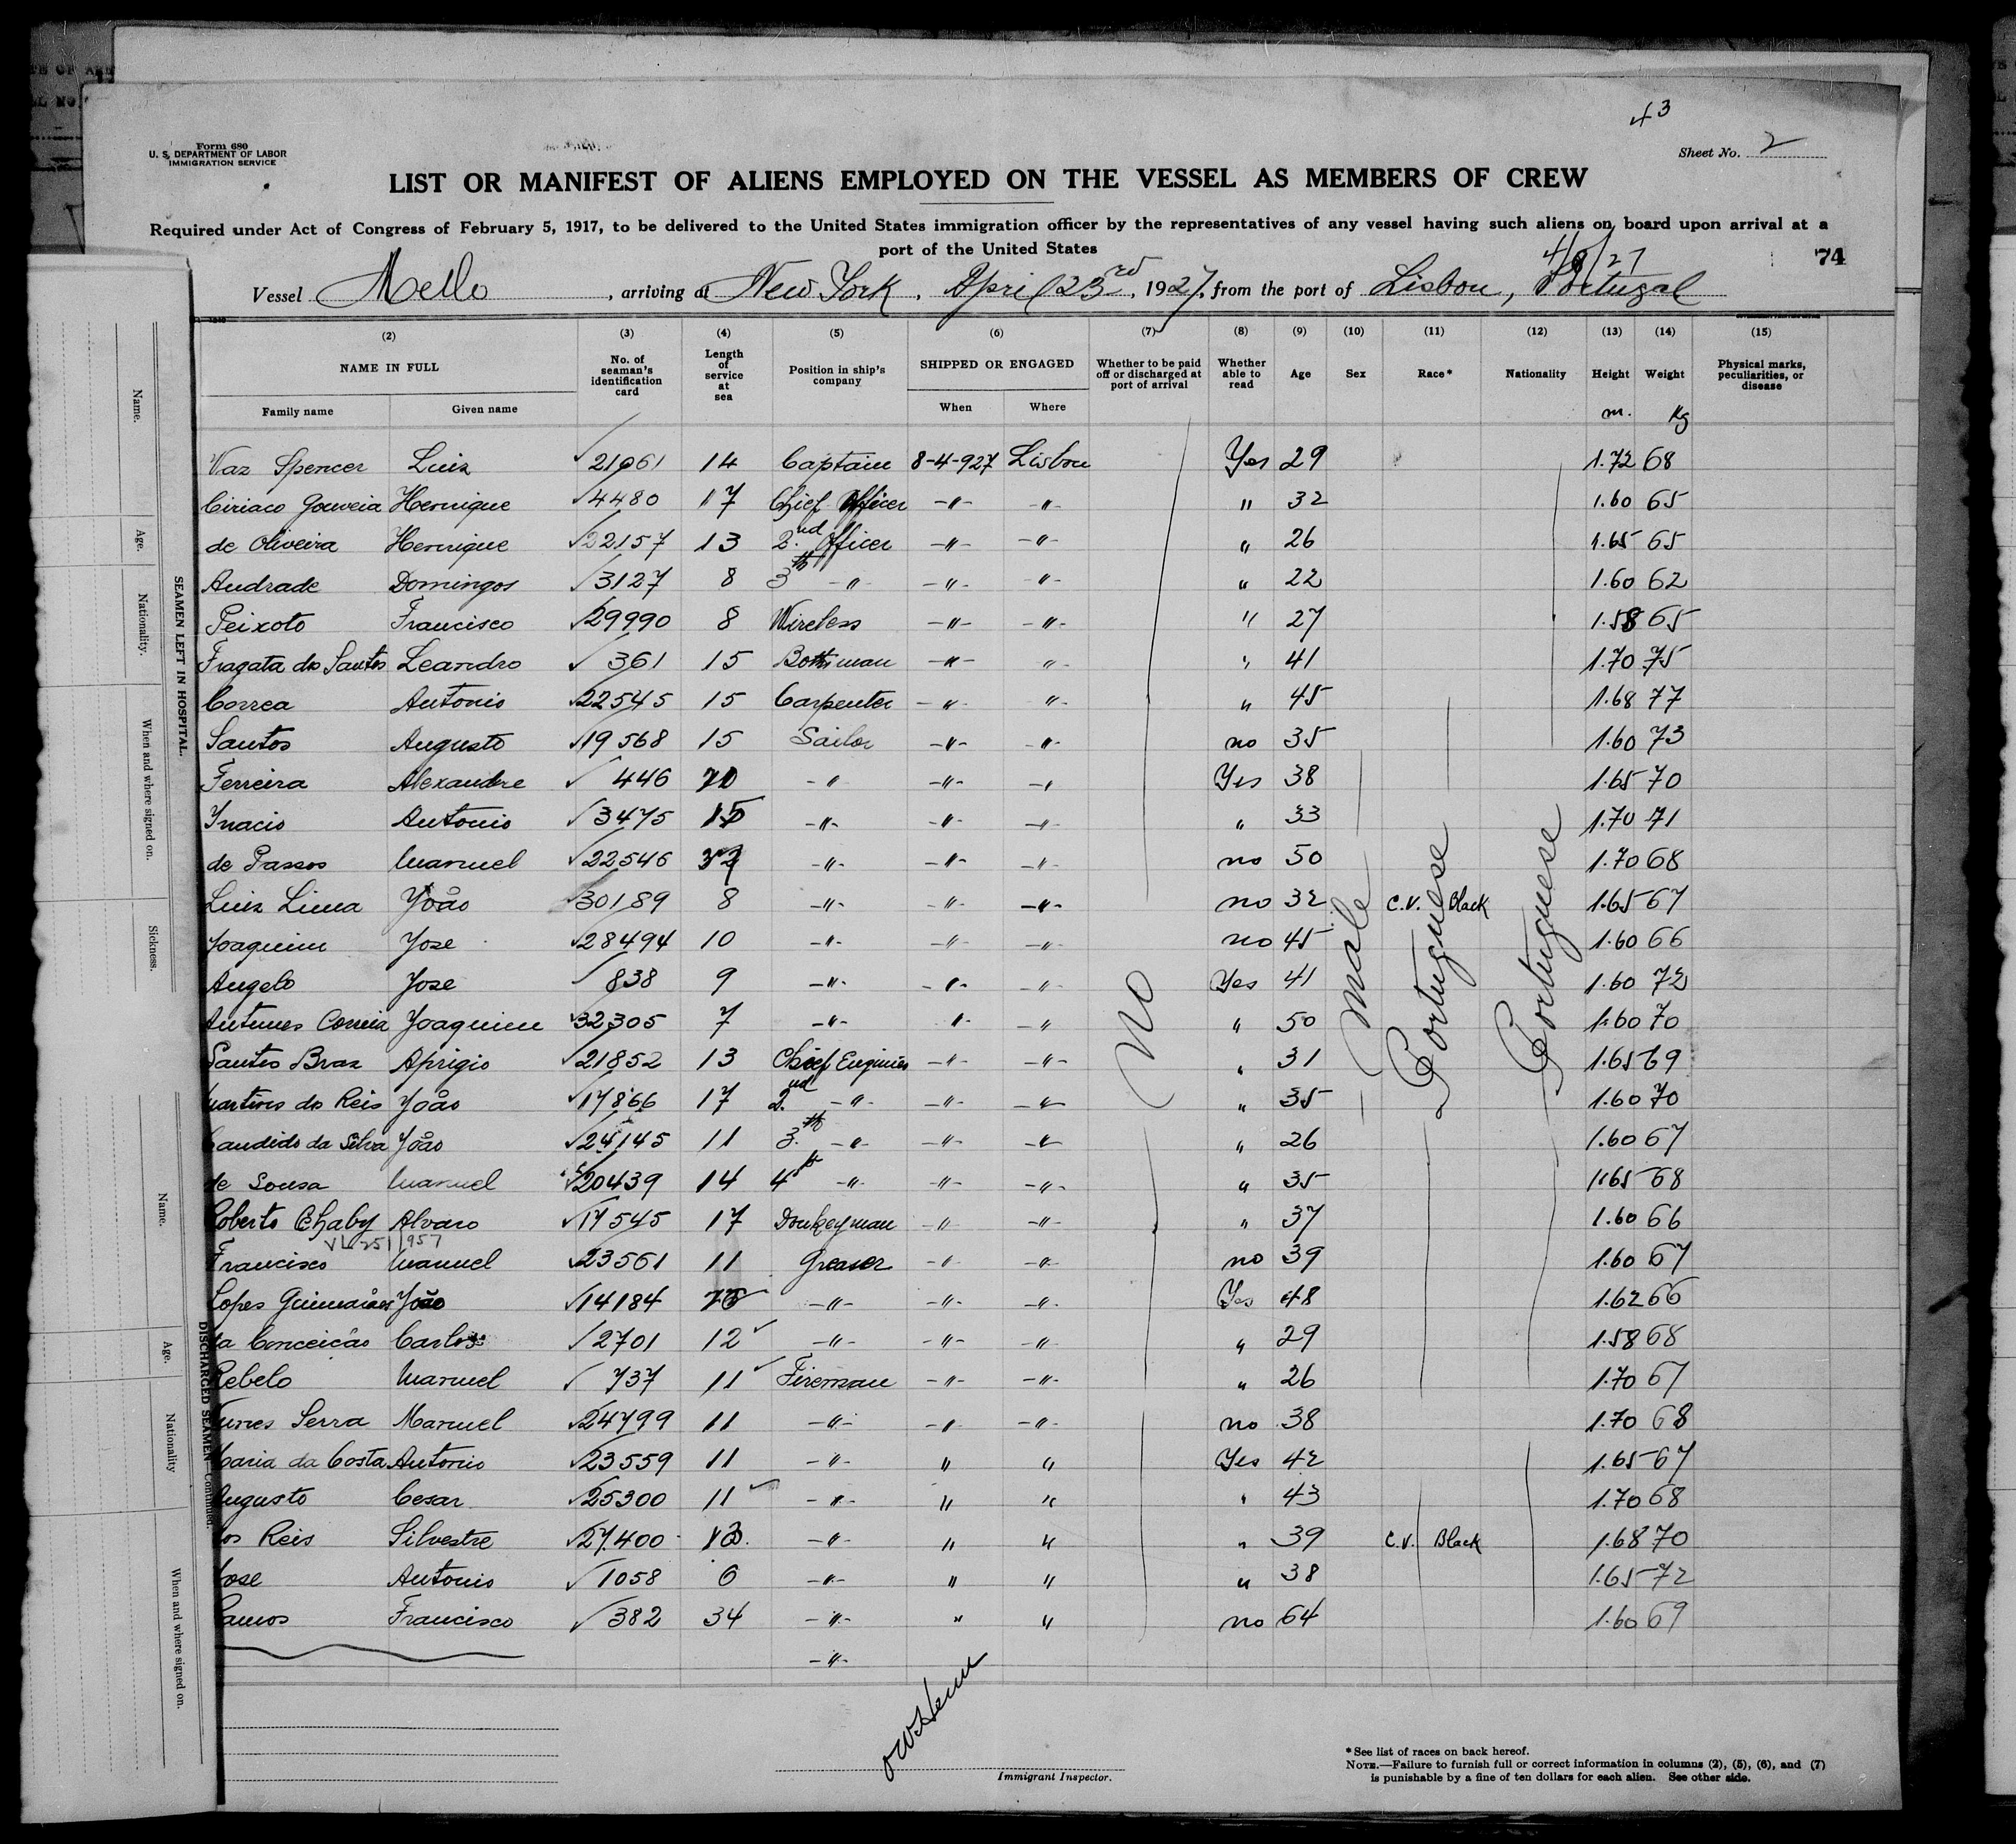 43
Form 680
U. S. DEPARTMENT OF LABOR
IMMIGRATION SERVICE
Sheet No. 2
LIST OR MANIFEST OF ALIENS EMPLOYED ON THE VESSEL AS MEMBERS OF CREW
Required under Act of Congress of February 5, 1917, to be delivered to the United States immigration officer by the representatives of any vessel having such aliens on board upon arrival at a
port of the United States
74
Vessel Mello, arriving at New York, April 23rd, 1927, from the port of Lisbon, Portugal
(2) (3) (4) (5) (6) (7) (8) (9) (10) (11) (12) (13) (14) (15)
NAME IN FULL No. of seaman's identification card Length of service at sea Position in ship's company SHIPPED OR ENGAGED Whether to be paid off or discharged at port of arrival Whether able to read Age Sex Race* Nationality Height Weight Physical marks, peculiarities, or disease
Family name Given name When Where m. Kg
Vaz Spencer Luiz 21061 14 Captain 8-4-927 Lisbon Yes 29 1.72 68
Ciriaco Gouveia Henrique 4480 17 Chief Officer -"- -"- " 32 1.60 65
de Oliveira Henrique 22157 13 2nd Officer -"- -"- " 26 1.65 65
Andrade Domingos 3127 8 3th -"- -"- -"- " 22 1.60 62
Peixoto Francisco 29990 8 Wireless -"- -"- " 27 1.58 65
Fragata dos Santos Leandro 361 15 -"- -"- " 41 1.70 75
Correa Antonio 22545 15 Carpenter -"- -"- " 45 1.68 77
Santos Augusto 19568 15 Sailor -"- -"- no 35 1.60 73
Ferreira Alexandre 446 -"- -"- -"- Yes 38 1.65 70
Inacio Antonio 3475 15 -"- -"- -"- " 33 1.70 71
de Passos Manuel 22546 32 -"- -"- -"- no 50 1.70 68
Luiz Lima João 30189 8 -"- -"- -"- no 32 C.V. Black 1.65 67
Joaquim Jose 28494 10 -"- -"- -"- no 45 1.60 66
Angelo Jose 838 9 -"- -"- -"- Yes 41 1.60 72
Antunes Correia Joaquim 32305 7 -"- -"- -"- " 50 1.60 70
Santos Braz Aprigio 21852 13 Chief Engineer -"- -"- " 31 1.65 69
Martins dos Reis João 17866 17 2nd -"- -"- -"- " 35 1.60 70
Candido da Silva João 24145 11 3th -"- -"- -"- " 26 1.60 67
de Sousa Manuel 20439 14 4th -"- -"- -"- " 35 1.65 68
Roberto Chaby Alvaro 17545 17 Donkeyman -"- -"- " 37 1.60 66
Francisco Manuel 23561 11 Greaser -"- -"- no 39 1.60 67
Lopes Guimarães João 14184 -"- -"- -"- Yes 48 1.62 66
da Conceicão Carlos 2701 12 -"- -"- -"- " 29 1.58 68
Rebelo Manuel 737 11 Fireman -"- -"- " 26 1.70 67
Nunes Serra Manuel 24799 11 -"- -"- -"- no 38 1.70 68
Maria da Costa Antonio 23559 11 -"- " " Yes 42 1.65 67
Augusto Cesar 25300 11 -"- " " " 43 1.70 68
dos Reis Silvestre 27.400 13 -"- " " " 39 C.V. Black 1.68 70
Jose Antonio 1058 6 -"- " " " 38 1.65 72
Ramos Francisco 382 34 -"- " " no 64 1.60 69
-"-
No
male
Portuguese
Portuguese
Immigrant Inspector.
*See list of races on back hereof.
NOTE.—Failure to furnish full or correct information in columns (2), (5), (6), and (7)
is punishable by a fine of ten dollars for each alien. See other side.
Name.
Age.
Nationality.
When and where signed on.
Sickness.
SEAMEN LEFT IN HOSPITAL.
Name.
Age.
Nationality
When and where signed on.
DISCHARGED SEAMEN—Continued.